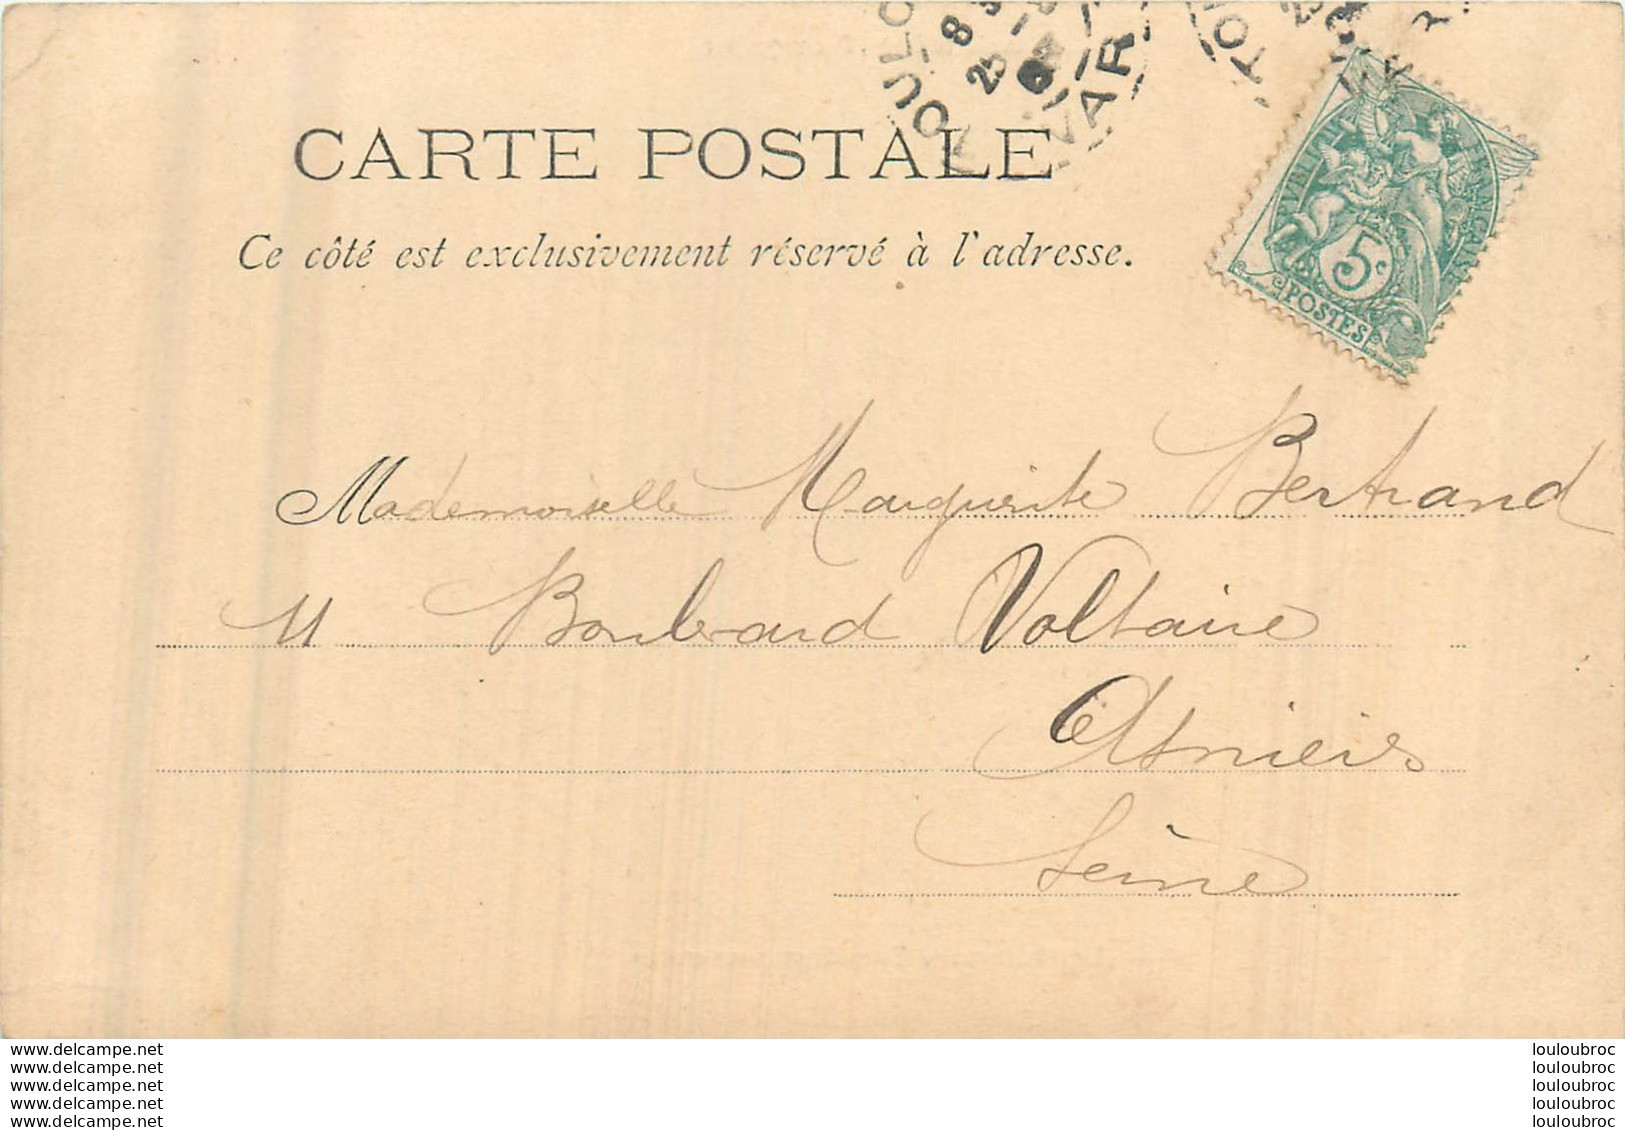 TOULON
8
25
VAR
CARTE POSTALE
Ce côté est exclusivement réservé à l'adresse.
5c
POSTES
Mademoiselle Marguerite Bertrand
11 Boulevard Voltaire
Asnières
Seine
www.delcampe.net louloubroc
www.delcampe.net louloubroc
www.delcampe.net louloubroc
www.delcampe.net louloubroc
www.delcampe.net louloubroc